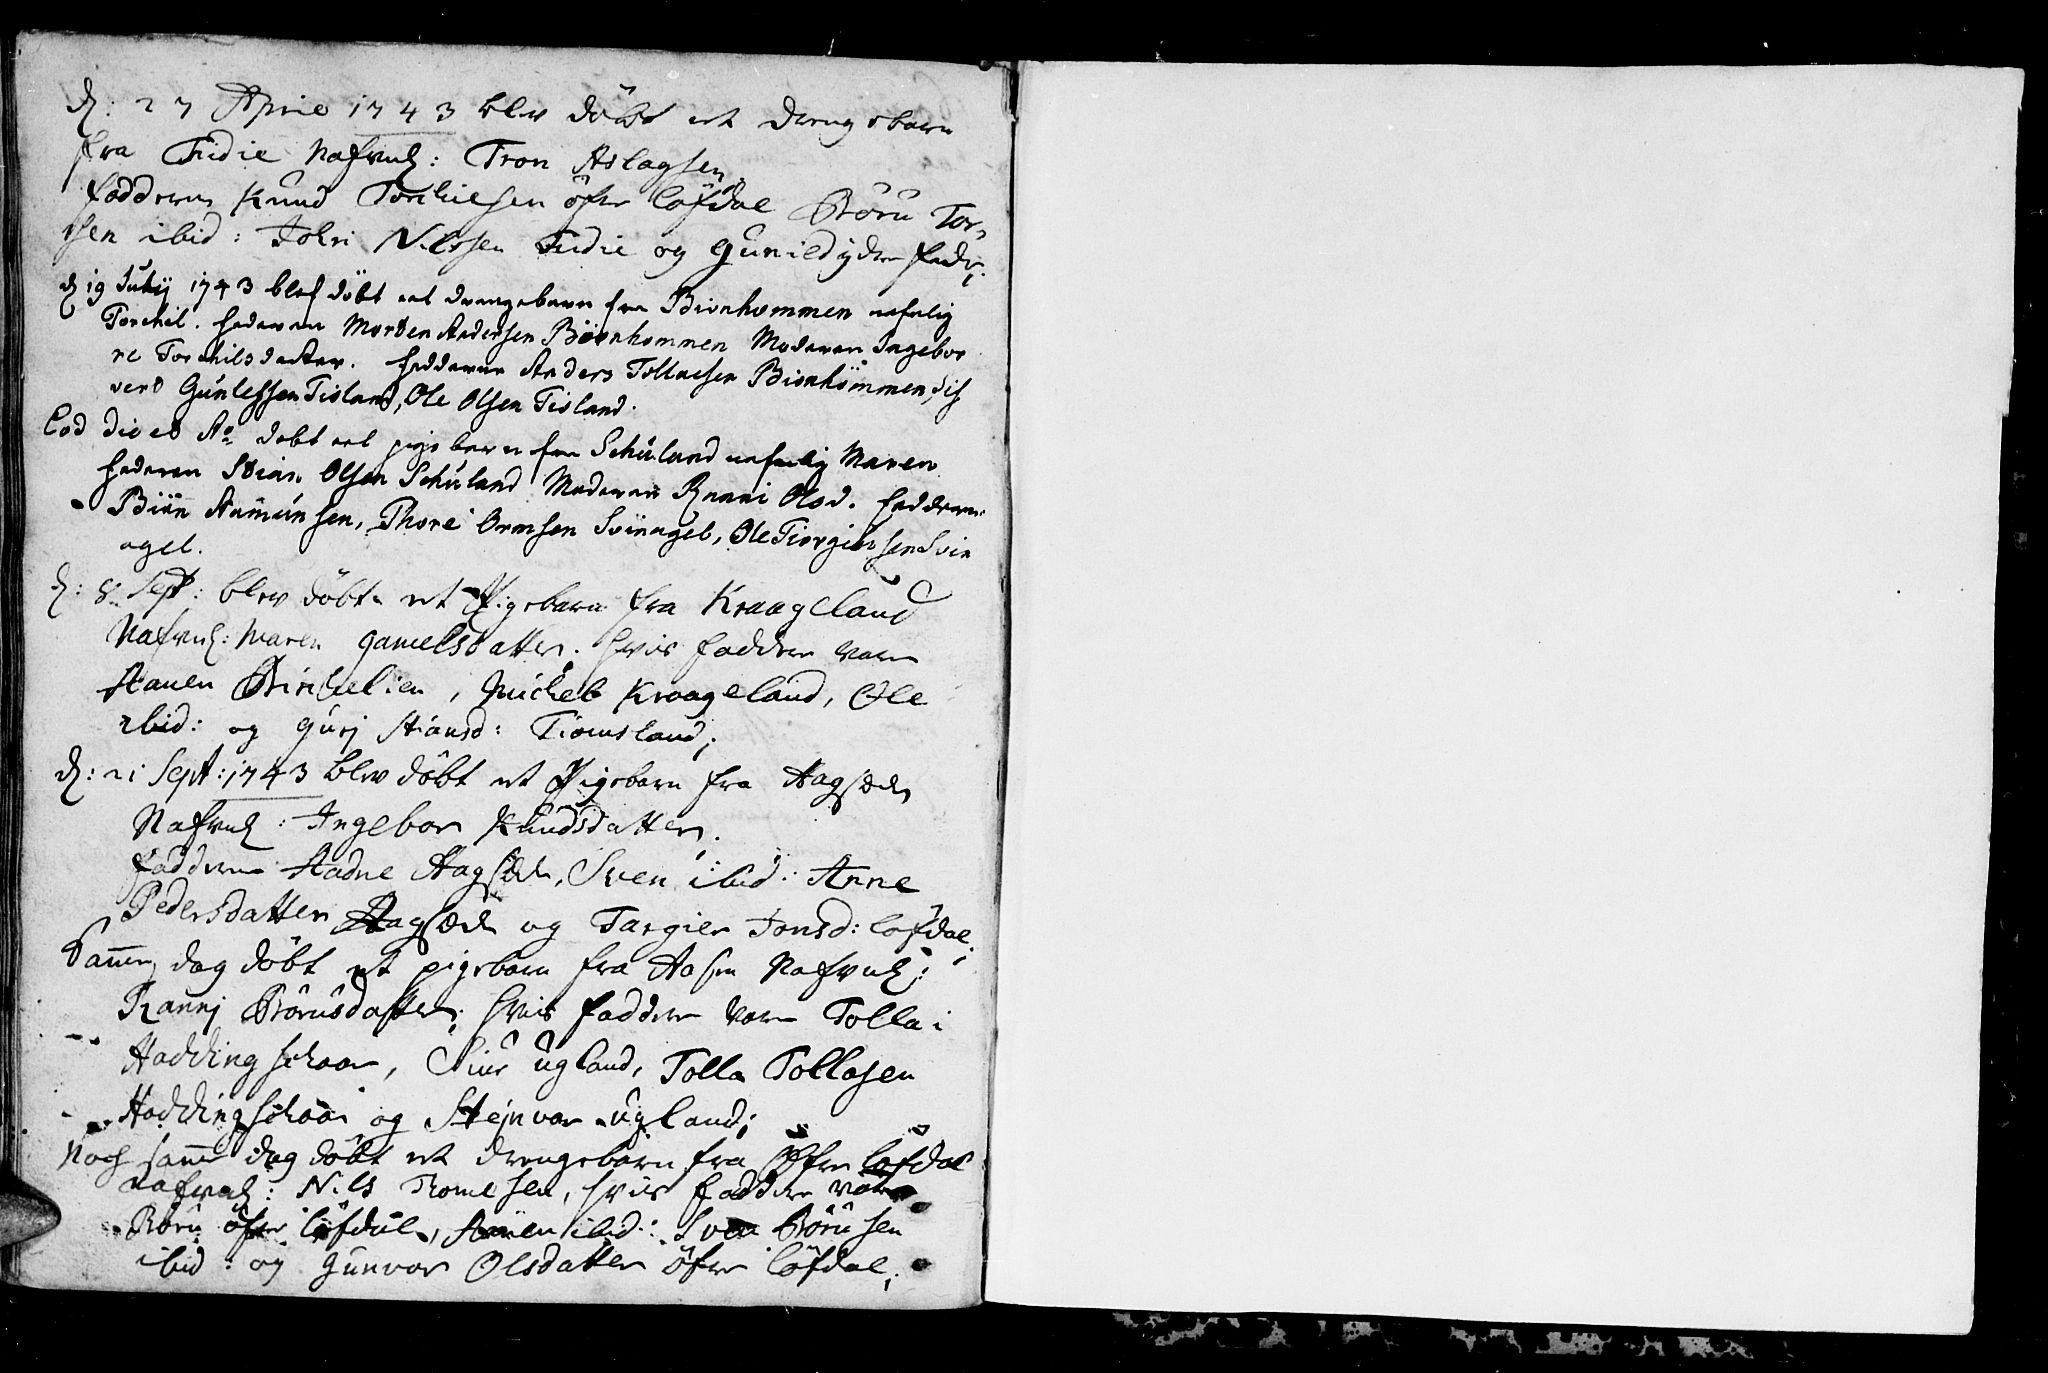 d: 27 Aprie 1743 blev döbt et Drengebarn
fra Tridie Nafnl: Tron Aslagsen.
fadderne Knud Torchiesen öfre löfdal Börü Tor-
sen ibid: John Nilssen Tridie og Gunild ydre
d 19 Julij 1743 blef döbt eet drengebarn fra Bionhommen nafnlig
Torchil. faderen Morten Andersen Bionhommen Moderen Ingebor
re Torchilsdatter. fadderne Anders Tollaesen Bionhommen, Sif
vert Gunlefsen Tisland, Ole Olsen Tisland.
Eod die et Ao döbt eet pigebarn fra Schuland nafnlig Maren
faderen Stian Olsen Schuland Moderen Ranni Olsd. fadderne
Biön Aamunsen, Thore Ormsen Svinagel, Ole Tiorgiusen Svin
agel.
d: 8 Sept: blev döbt et Pigebarn fra Kraageland
Nafnl: Maren Gamelsdatter. hvis faddere vare
Aanen Birchelien, Michel Kraageland, Ole
ibid: og Gurj Stiansd: Tiomsland;
d: 21 Sept: 1743 blev döbt et Pigebarn fra Aagsæde
Nafnl: Ingebor Knudsdatter.
fadderne Aadne Aagsæde, Sven ibid: Anne
Pedersdatter Aagsæde og Targier Jonsd: löfdal;
Samme dag döbt et pigebarn fra Aasen Nafnl:
Rannj Börüsdatter; hvis faddere vare Tolla i
Haddingschaar, Siur Ugland, Tolla Tollasen
Haddingschaar og Stejnvor Ugland;
Noch samme dag döbt et drengebarn fra Öfre löfdal
nafnl: Nils Tromesen, hvis faddere vare
Börü öfre löfdal, Aanen ibid: Sven Börüsen
ibid: og Gunvor Olsdatter öfre löfdal;